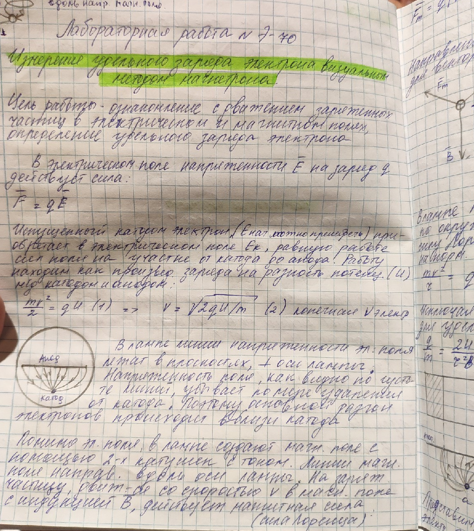 вдоль напр. поля
Лабораторная работа N Э-70
Измерение удельного заряда электрона визуальным
методом магнетрона.
Цель работы - ознакомление с движением заряженных
частиц в электрическом и магнитном полях,
определение удельного заряда электрона
В электрическом поле напряженности E̅ на заряд q
действует сила:
F̅ = qE̅
Испущенный катодом электрон (Eнач можно пренебречь) при-
обретает в электрическом поле Eк, равную работе
сил поля на участке от катода до анода! Работу
находим как произвед заряда на разность потенц. (U)
м/д катодом и анодом:
mv²/2 = qU (1) => v = √2qU/m (2) конечная V электр
В лампе линии напряженности эл. поля
лежат в плоскостях, ⊥ оси лампы.
Напряженность поля, как видно по густо-
те линий, убывает по мере удаления
от катода. Поэтому основной разгон
электронов происходит вблизи катода
анод
катод
Помимо эл. поля, в лампе создают магн. поле с
помощью 2-х катушек с током. Линии магн.
поля направ. вдоль оси лампы. На заряж
частицу, движ-ся со скоростью v в магн. поле
с индукцией B̅, действует магнитная сила
(сила Лоренца):
Fm = q
Направление
Fm
B
V
В лампе
по окру
mv²/r = q
Исключая
q/m = 2U/r²B